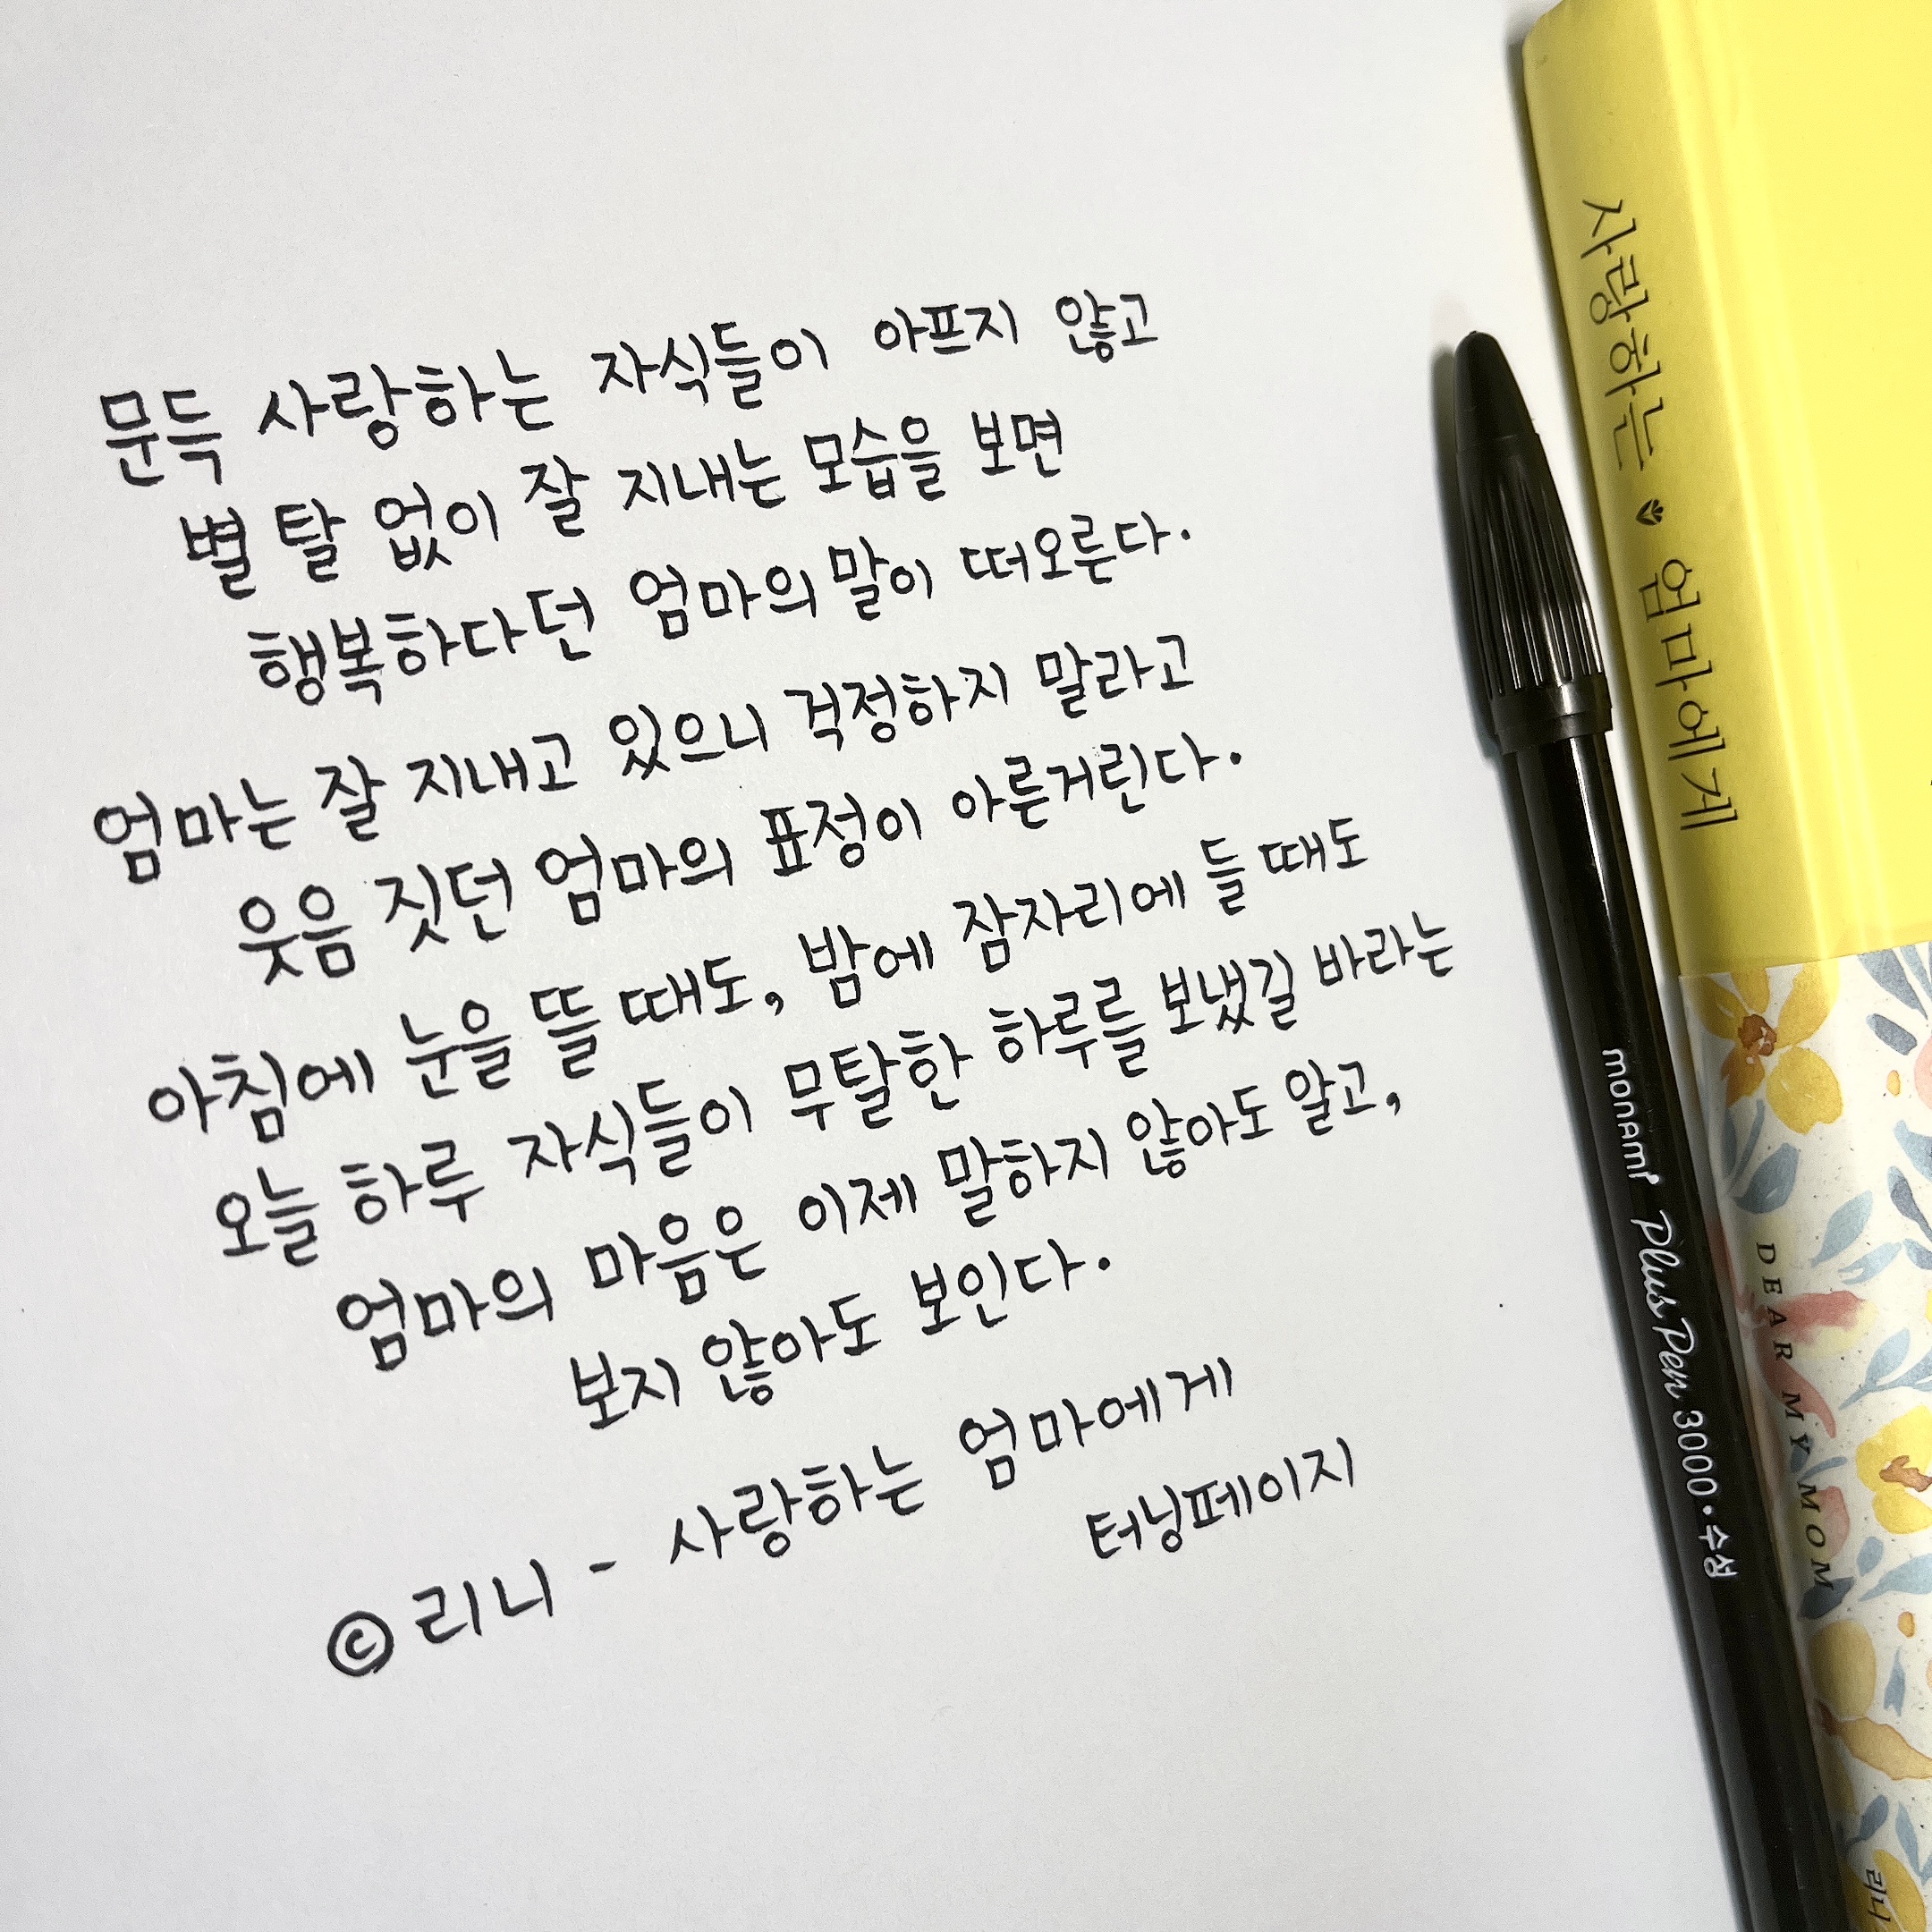 문득 사랑하는 자식들이 아프지 않고
별 탈 없이 잘 지내는 모습을 보면
행복하다던 엄마의 말이 떠오른다.
엄마는 잘 지내고 있으니 걱정하지 말라고
웃음 짓던 엄마의 표정이 아른거린다.
아침에 눈을 뜰 때도, 밤에 잠자리에 들 때도
오늘 하루 자식들이 무탈한 하루를 보냈길 바라는
엄마의 마음은 이제 말하지 않아도 알고,
보지 않아도 보인다.
©리니 - 사랑하는 엄마에게
터닝페이지
monami Plus Pen 3000·수성
사랑하는 엄마에게
DEAR MY MOM
리니